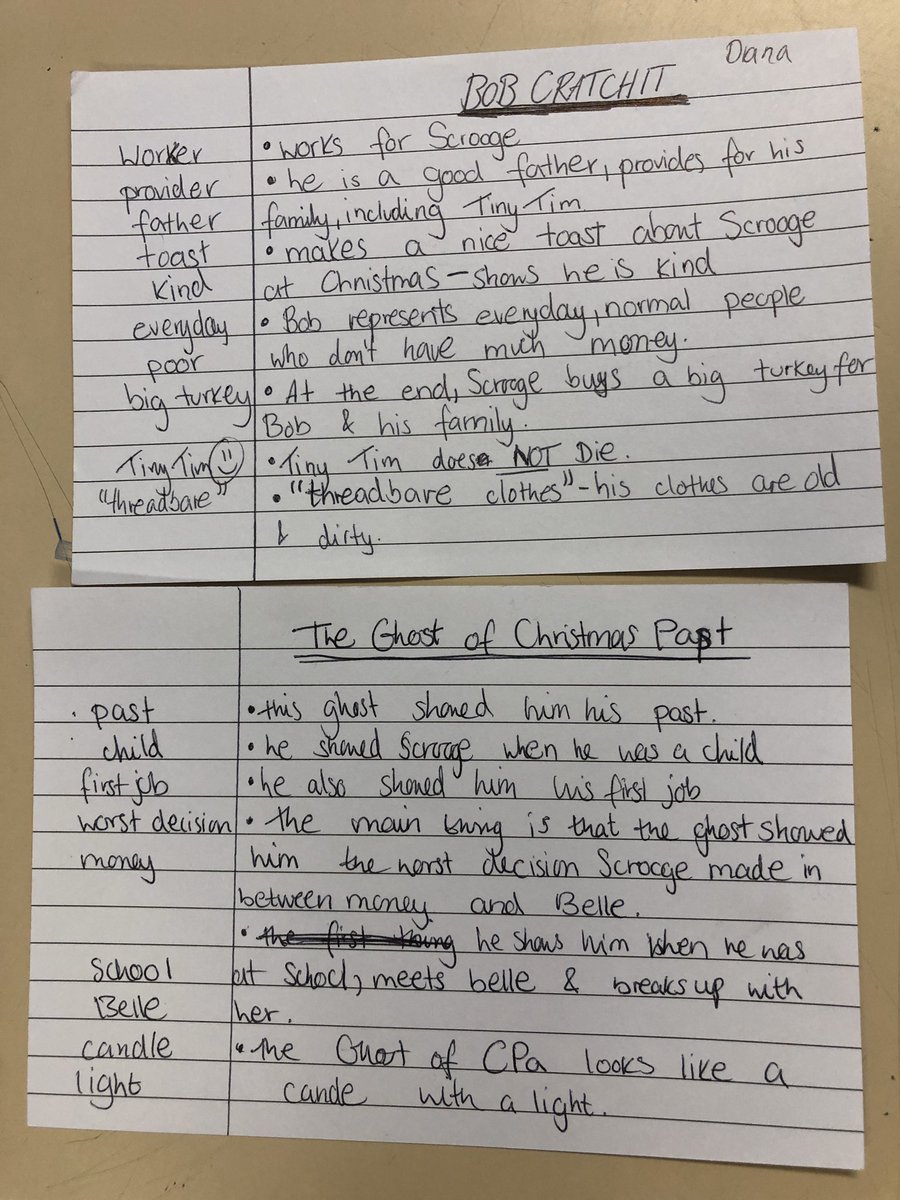 Dana
BOB CRATCHIT
Worker • works for Scrooge
provider • he is a good father, provides for his
father family, including Tiny Tim
toast • makes a nice toast about Scrooge
kind at Christmas – shows he is kind
everyday • Bob represents everyday, normal people
poor who don't have much money.
big turkey • At the end, Scrooge buys a big turkey for
Bob & his family.
Tiny Tim • Tiny Tim does NOT Die.
"threadbare" • "threadbare clothes" – his clothes are old
& dirty.
The Ghost of Christmas Past
past • this ghost showed him his past.
child • he showed Scrooge when he was a child
first job • he also showed him his first job
worst decision • the main thing is that the ghost showed
money him the worst decision Scrooge made in
between money and Belle.
• the first thing he shows him when he was
School at School, meets belle & breaks up with
Belle her.
candle • the Ghost of CPa looks like a
light cande with a light.